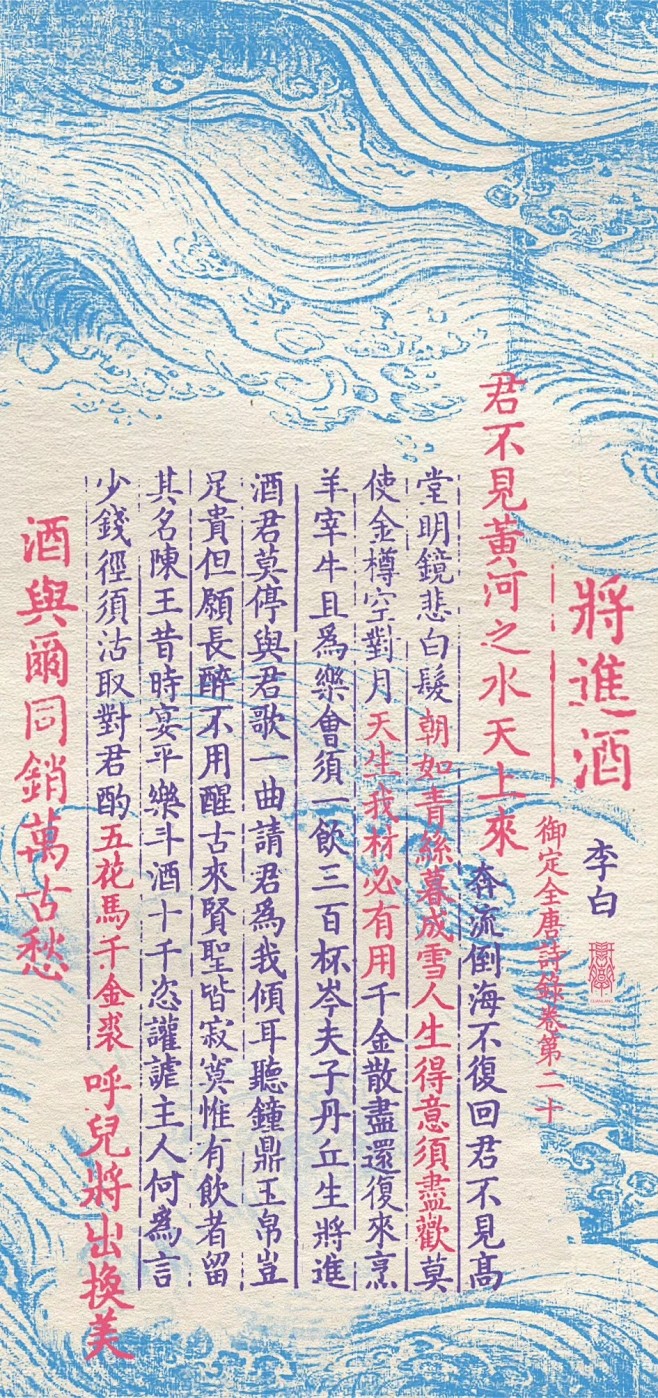 將進酒
李白
御定全唐詩錄卷第二十
君不見黃河之水天上來奔流倒海不復回君不見高
堂明鏡悲白髮朝如青絲暮成雪人生得意須盡歡莫
使金樽空對月天生我材必有用千金散盡還復來烹
羊宰牛且為樂會須一飲三百杯岑夫子丹丘生將進
酒君莫停與君歌一曲請君為我傾耳聽鐘鼎玉帛豈
足貴但願長醉不用醒古來賢聖皆寂寞惟有飲者留
其名陳王昔時宴平樂斗酒十千恣讙謔主人何為言
少錢徑須沽取對君酌五花馬千金裘呼兒將出換美
酒與爾同銷萬古愁